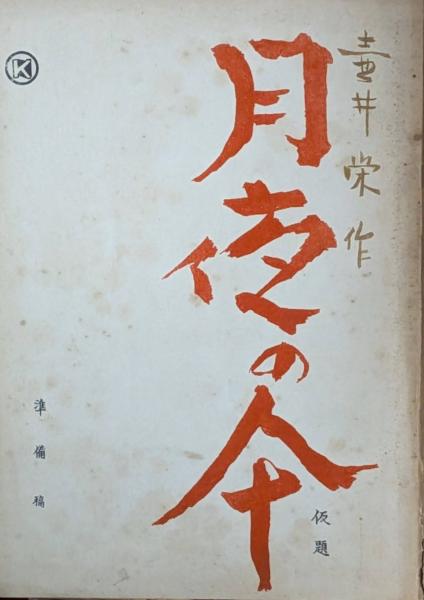 壺井栄作
月夜の傘
仮題
準備稿
K